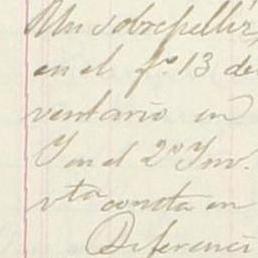 Un sobrepelliz
en el fº 13 de
ventario en
Y en el 2º Ynv.
vta consta en
Diferenci